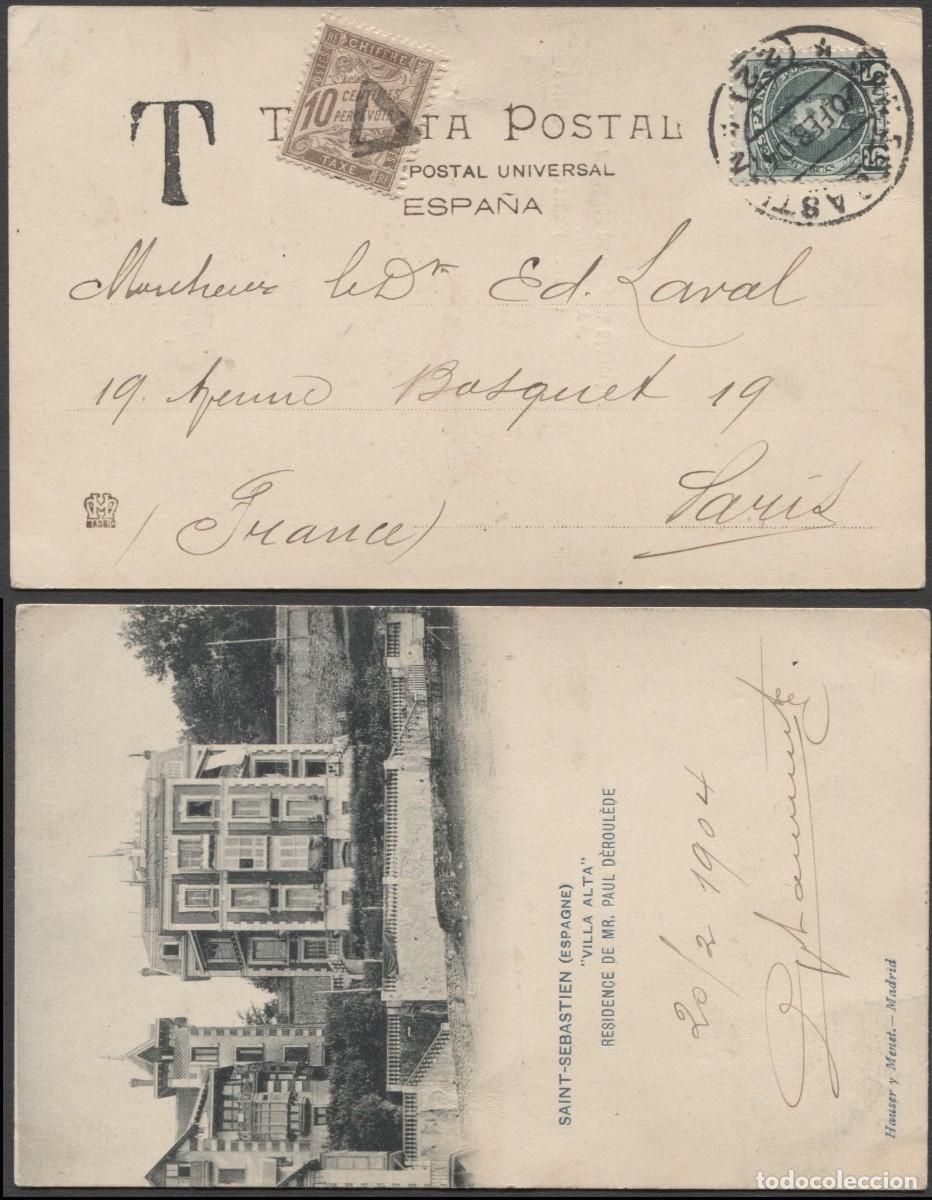 T
TARJETA POSTAL
POSTAL UNIVERSAL
ESPAÑA
CHIFFRE
10 CENTIMES
PERCEVOIR
TAXE
20 FEB
Monsieur le Dr Ed. Laval
19. Avenue Bosquet 19
(France) Paris
MADRID
SAINT-SEBASTIEN (ESPAGNE)
"VILLA ALTA"
RESIDENCE DE MR. PAUL DÈROULÈDE
20/2 1904
Hauser y Menet.-Madrid
todocoleccion